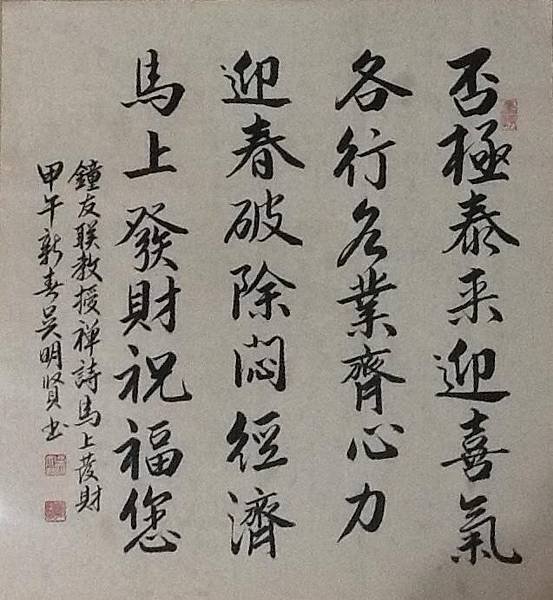 否極泰来迎喜氣
各行各業齊心力
迎春破除悶經濟
馬上發財祝福您
鐘友联教授禅詩馬上發財
甲午新春吴明賢书